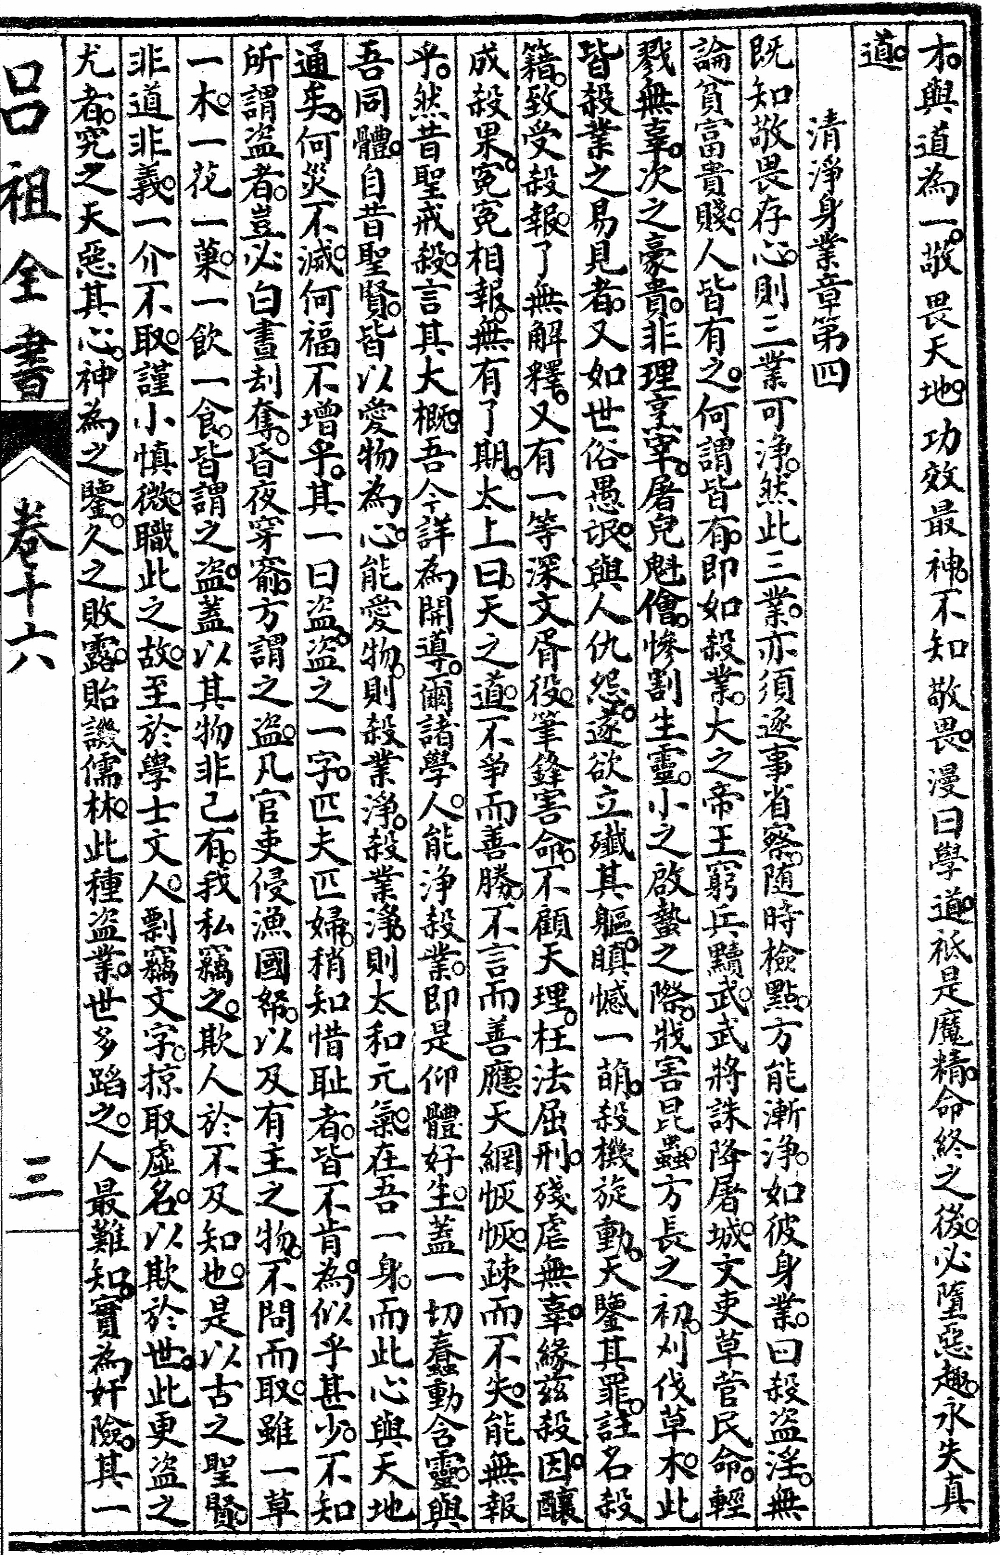 木與道為一敬畏天地功效最神不知敬畏漫曰學道祗是魔精命終之後必墮惡趣永失真
道
清淨身業章第四
既知敬畏存心則三業可淨然此三業亦須逐事省察隨時檢點方能漸淨如彼身業曰殺盜淫無
論貧富貴賤人皆有之何謂皆有即如殺業大之帝王窮兵黷武武將誅降屠城文吏草菅民命輕
戮無辜次之豪貴非理烹宰屠兒魁儈慘割生靈小之啟蟄之際戕害昆蟲方長之初刈伐草木此
皆殺業之易見者又如世俗愚氓與人仇怨遂欲立殲其軀瞋憾一萌殺機旋動天鑒其罪註名殺
籍致受殺報了無解釋又有一等深文胥役筆鋒害命不顧天理枉法屈刑殘虐無辜緣茲殺因釀
成殺果冤冤相報無有了期太上曰天之道不爭而善勝不言而善應天網恢恢疎而不失能無報
乎然昔聖戒殺言其大概吾今詳為開導爾諸學人能淨殺業即是仰體好生蓋一切蠢動含靈與
吾同體自昔聖賢皆以愛物為心能愛物則殺業淨殺業淨則太和元氣在吾一身而此心與天地
通矣何災不滅何福不增乎其一曰盜盜之一字匹夫匹婦稍知惜耻者皆不肯為似乎甚少不知
所謂盜者豈必白晝刦奪昏夜穿窬方謂之盜凡官吏侵漁國帑以及有主之物不問而取雖一草
一木一花一菓一飲一食皆謂之盜蓋以其物非己有我私竊之欺人於不及知也是以古之聖賢
非道非義一介不取謹小慎微職此之故至於學士文人剽竊文字掠取虛名以欺於世此更盜之
尤者究之天惡其心神為之鑒久之敗露貽譏儒林此種盜業世多蹈之人最難知實為奸險其一
呂祖全書
卷十六
三